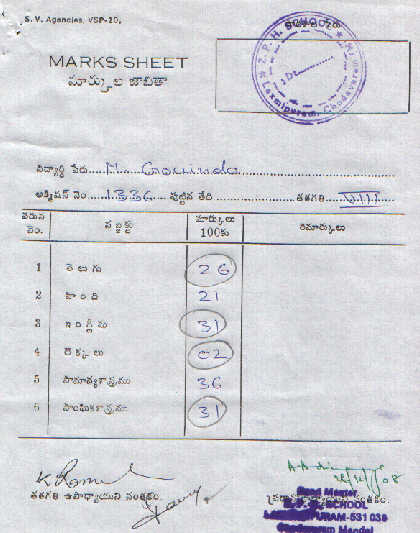 S. V. Agencies, VSP-20.
Z. P. H. SCHOOL
Laxmipuram,
MARKS SHEET
మార్కుల జాబితా
విద్యార్థి పేరు M. Govinda
అడ్మిషన్ నెం. 1336 పుట్టిన తేది తరగతి VIII
వరుస నెం. సబ్జక్టు మార్కులు 100కు రిమార్కులు
1 తెలుగు 26
2 హింది 21
3 ఇంగ్లీషు 31
4 లెక్కలు 02
5 సామాన్యశాస్త్రము 36
6 సాంఘికశాస్త్రము 31
తరగతి ఉపాధ్యాయుని సంతకం.
Head Master
SCHOOL
PURAM-531 036
Mandal